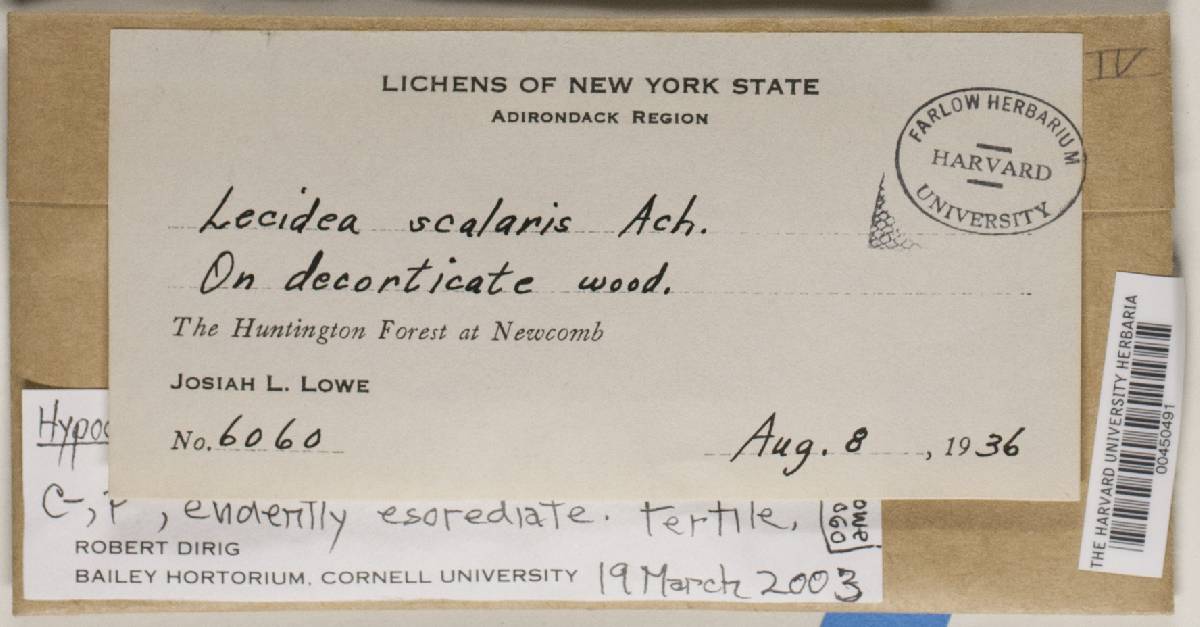 IV
LICHENS OF NEW YORK STATE
ADIRONDACK REGION
FARLOW HERBARIUM
HARVARD
UNIVERSITY
Lecidea scalaris Ach.
On decorticate wood.
The Huntington Forest at Newcomb
JOSIAH L. LOWE
No. 6060
Aug. 8, 1936
Hypoc
C-, P, evidently esorediate. Fertile.
ROBERT DIRIG
BAILEY HORTORIUM, CORNELL UNIVERSITY 19 March 2003
THE HARVARD UNIVERSITY HERBARIA
00450491